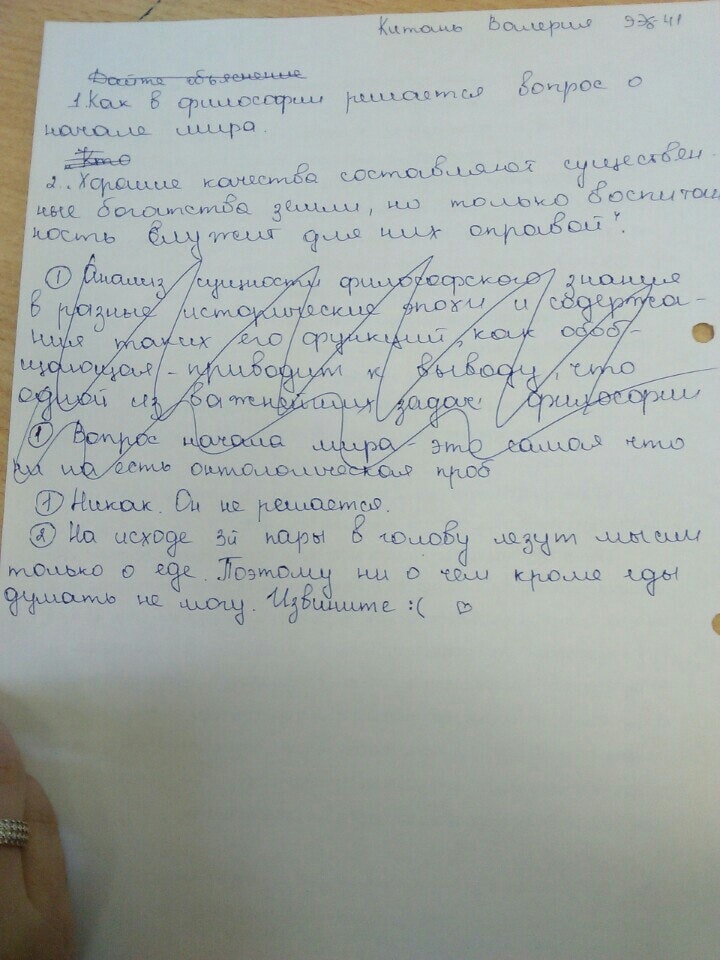 Китань Валерия ЭЖ-41
Дайте объяснение
1. Как в философии решается вопрос о
начале мира.
Кто
2. "Хорошие качества составляют существен-
ные богатства земли, но только воспитан
ность служит для них оправой".
① Анализ сущности философского знания
в разные исторические эпохи и содержа-
ния таких его функций, как обоб-
щающая - приводит к выводу, что
одной из важнейших задач философии
① Вопрос начала мира - это самая что
ни на есть онтологическая проб
① Никак. Он не решается.
② На исходе 3й пары в голову лезут мысли
только о еде. Поэтому ни о чем кроме еды
думать не могу. Извините :( ♡